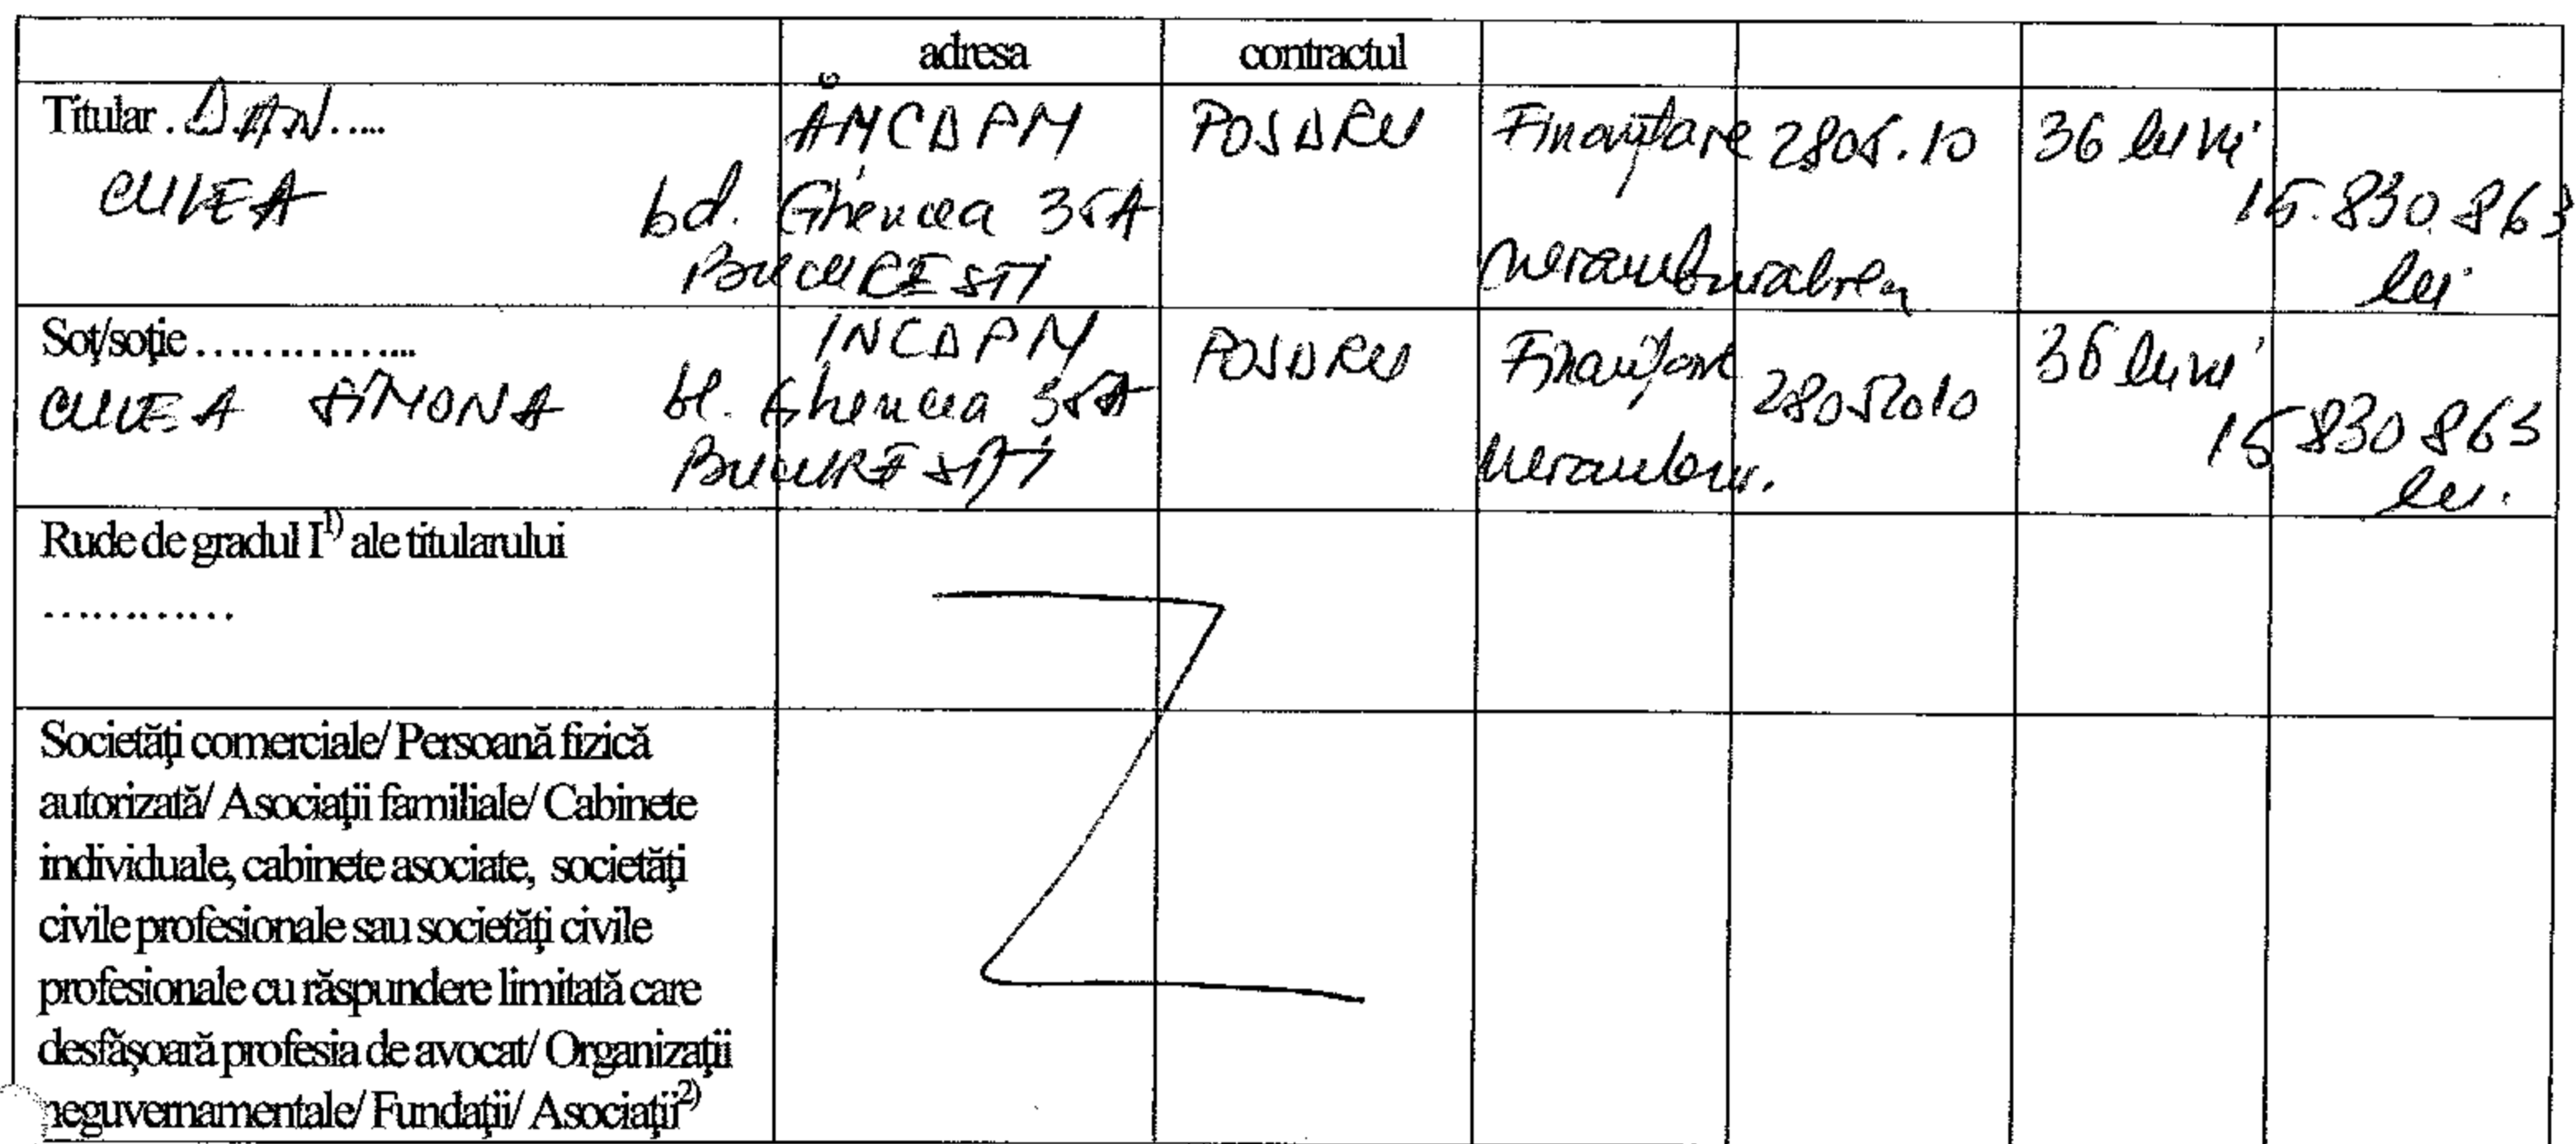 adresa contractul
Titular . DAN .....
CULEA
AMCDPM
bd. Ghencea 35A
BUCURESTI
POSDRU
Finanțare
nerambursabilen
2805.10
36 luni
15.830.863
lei
Soţ/soţie ……………...
CULEA SIMONA
INCDPM
bl. Ghencea 35A
BUCURESTI
POSDRU
Finanțare
neramburs.
28052010
36 luni
15 830 863
lei.
Rude de gradul I1) ale titularului
…………
Societăţi comerciale/ Persoană fizică
autorizată/ Asociaţii familiale/ Cabinete
individuale, cabinete asociate, societăţi
civile profesionale sau societăţi civile
profesionale cu răspundere limitată care
desfăşoară profesia de avocat/ Organizaţii
neguvernamentale/ Fundaţii/ Asociaţii2)